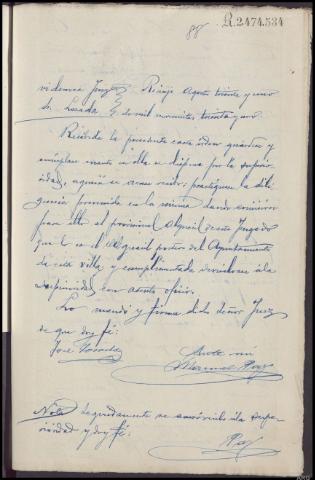 88
R.2474.534
videncia Juez Rianjo Agosto treinta y uno
Sr. Losada de mil novecientos treinta y uno.
Recibida la precedente carta orden guardese y
cumplase cuanto en ella se dispone por la superio-
ridad, acusese recibo, practiquese la dili-
gencia prevenida en la misma dando comision
para ello al provisional Alguacil de este Juzgado
que lo es el Alguacil portero del Ayuntamiento
de esta villa y cumplimentada devuelvase á la
superioridad con atento oficio.
Lo mandó y firma dicho Señor Juez
de que doy fé.
José Losada
Ante mi
Nota Seguidamente se acusó recibo á la supe-
rioridad y doy fé.